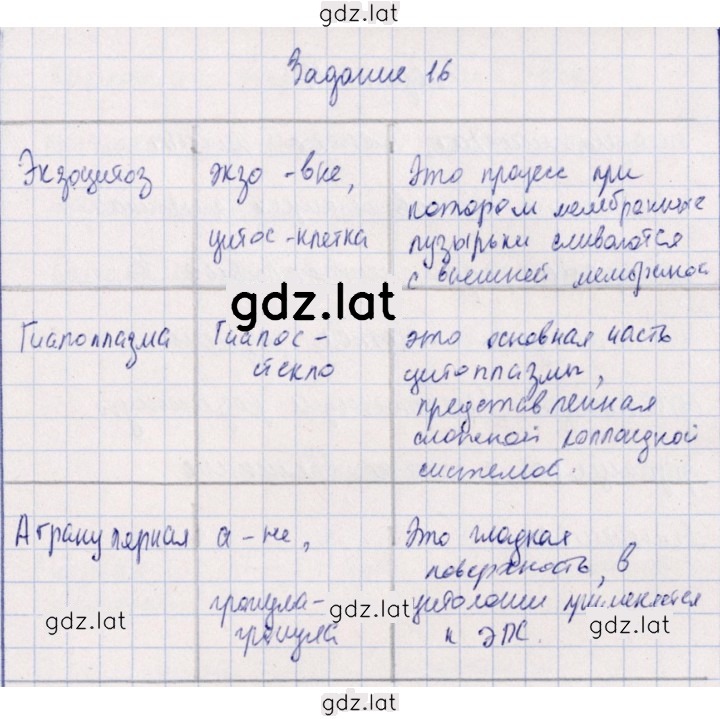 gdz.lat
Задание 16
Экзоцитоз
экзо - вне,
цитос - клетка
Это процесс при
котором мембранные
пузырьки сливаются
с внешней мембраной
gdz.lat
Гиалоплазма
Гиалос -
стекло
это основная часть
цитоплазмы,
представленная
сложной коллоидной
системой.
Агранулярная
а - не,
гранула -
гранула
Это гладкая
поверхность, в
цитологии применяется
к ЭПС.
gdz.lat
gdz.lat
gdz.lat
gdz.lat